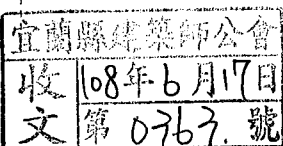 宜蘭縣建築師公會
收文
108年6月17日
第0363.號